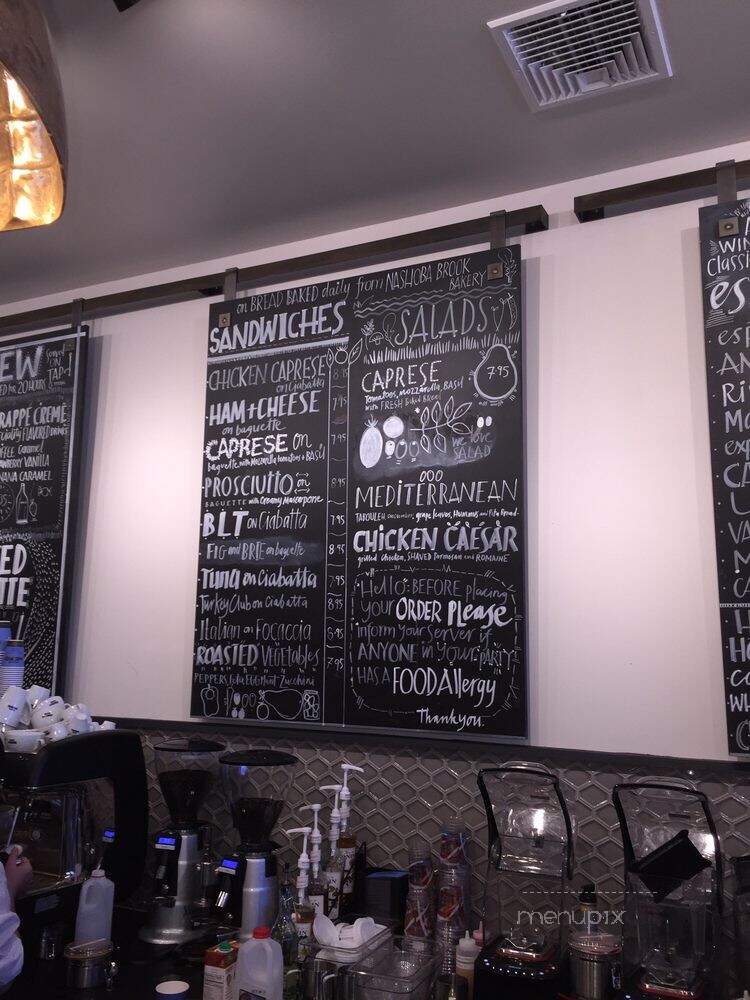 on BREAD BAKED daily from NASHOBA BROOK
BAKERY
SANDWICHES
CHICKEN CAPRESE
on Ciabatta
HAM+CHEESE
on baguette
7.95
CAPRESE on
Baguette with Mozzarella tomatoes + BASIL
7.95
PROSCIUTTO on
BAGUETTE with Creamy Mascarpone
8.95
BLT on Ciabatta
7.95
FIG and BRIE on baguette
8.95
TUNA on Ciabatta
7.95
Turkey Club on Ciabatta
8.95
Italian on Focaccia
ROASTED VEGETABLES
7.95
PEPPERS EGGPLANT Zucchini
SALADS
CAPRESE
7.95
Tomatoes, mozzarella, Basil
with FRESH Baked Bread
we love
SALAD
MEDITERRANEAN
TABOULEH cucumbers, grape leaves, Hummus and Pita Bread
CHICKEN CAESAR
grilled chicken, SHAVED Parmesan and ROMAINE
Hello: BEFORE placing
your ORDER Please
inform your server if
ANYONE in your PARTY
HAS A FOOD Allergy
Thank you.
EW
TAP
20 HOURS
RAPPE CREME
FLAVORED
Caramel
VANILLA
CARAMEL
ED
TTE
WIN
Classi
es
esp
AM
Ri
MA
exp
CA
L
VA
M
C
H
HO
co
WH
C
menupix